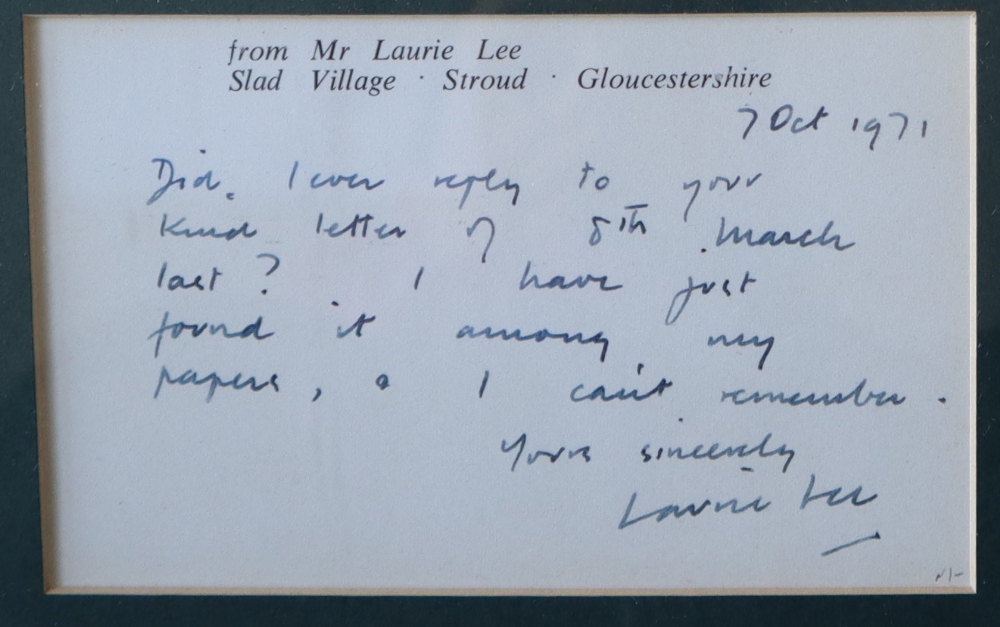 from Mr Laurie Lee
Slad Village · Stroud · Gloucestershire
7 Oct 1971
Did I ever reply to your
kind letter of 8th March
last? I have just
found it among my
papers, & I can't remember.
Yours sincerely
Laurie Lee